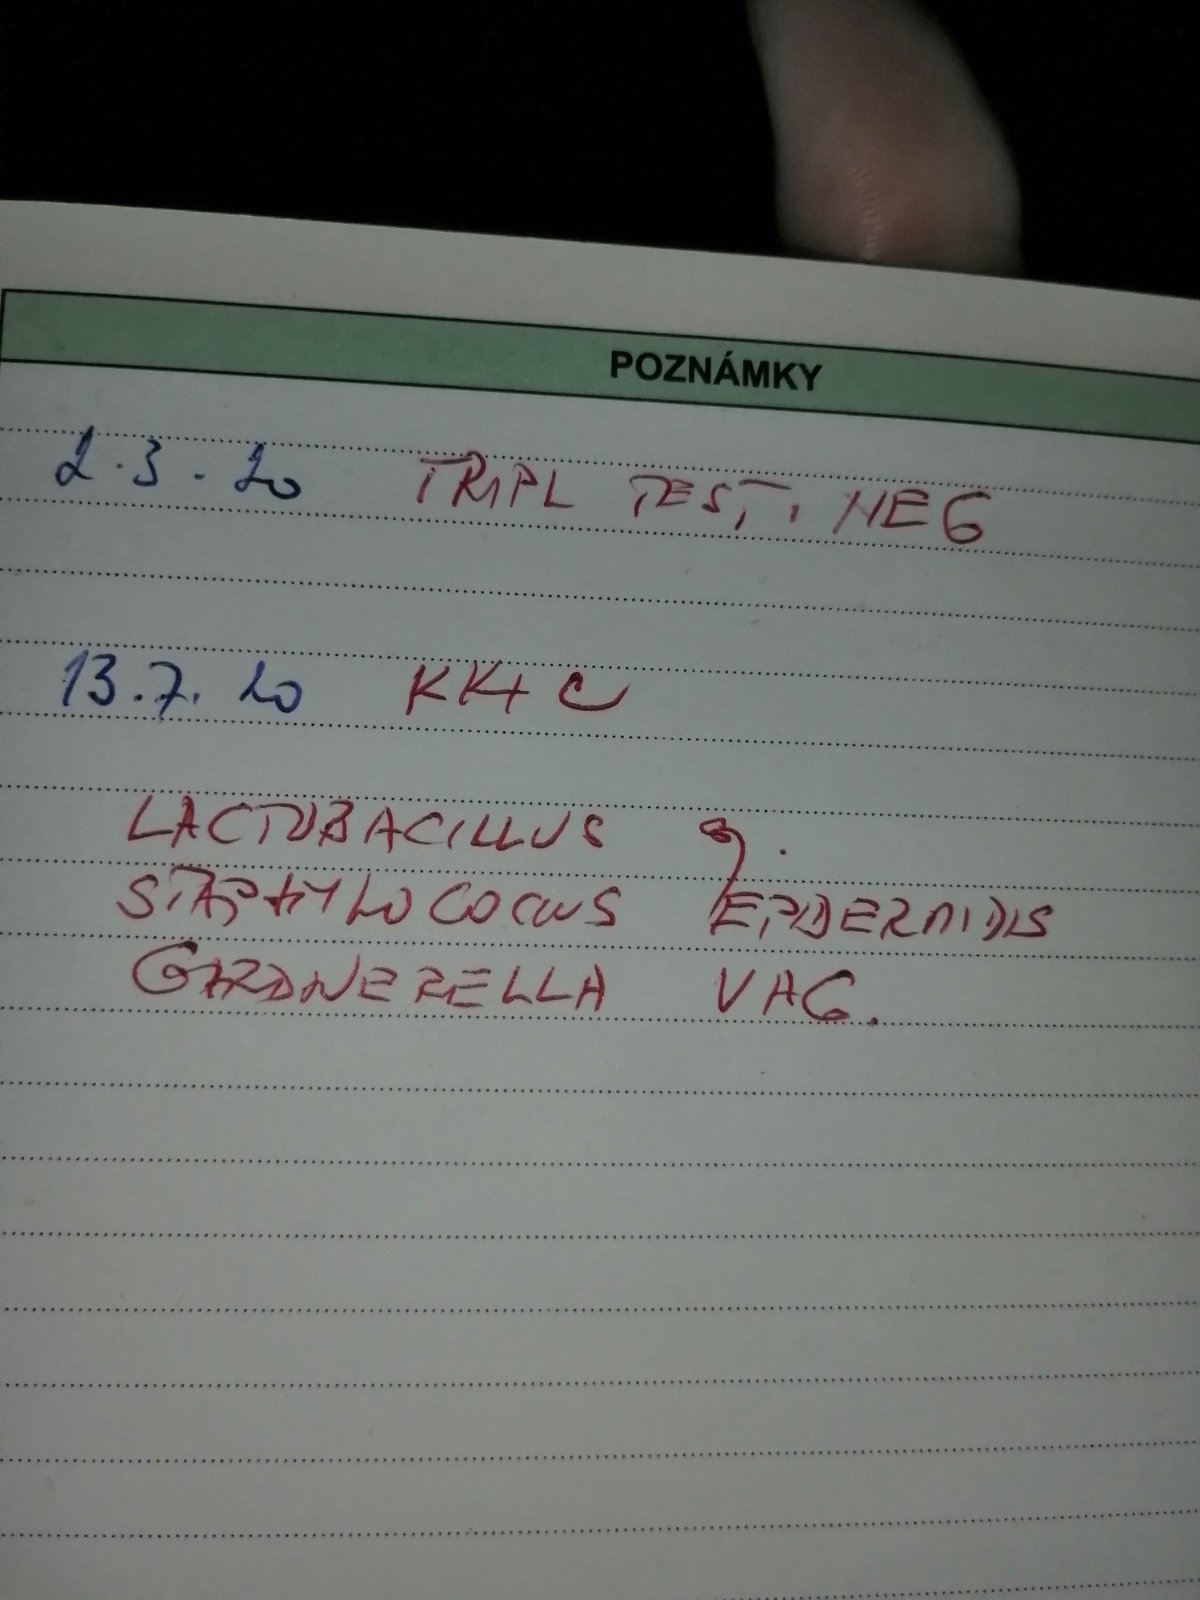 POZNÁMKY
2.3.20 TRIPL TEST, NEG
13.7.20 KK+C
LACTOBACILLUS
STAPHYLOCOCUS EPIDERMIDIS
GARDNERELLA VAG.